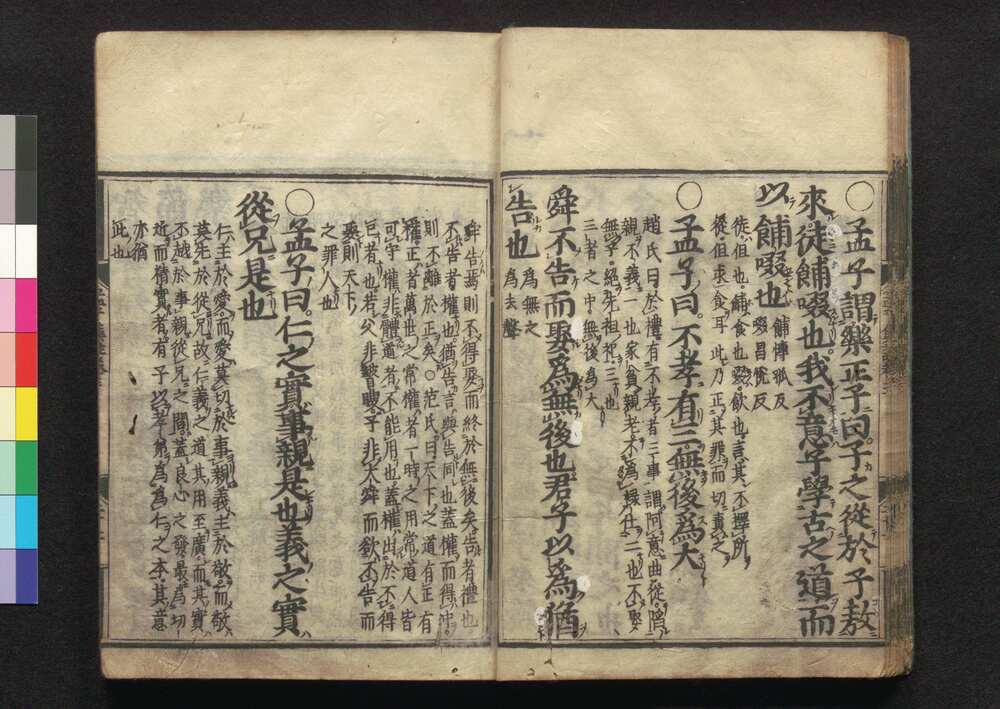 ○孟子謂樂正子曰子之從於子敖
來徒餔啜也我不意子學古之道而
以餔啜也
餔博孤反
啜昌悅反
徒但也餔食也啜飲也言其不擇所
從但求食耳此乃正其罪而切責之
○孟子曰不孝有三無後爲大
趙氏曰於禮有不孝者三事謂阿意曲從陷
親不義一也家貧親老不爲祿仕二也不娶
無子絕先祖祀三也
三者之中無後爲大
舜不告而娶爲無後也君子以爲猶
告也
爲無之
爲去聲
舜告焉則不得娶而終於無後矣告者禮也
不告者權也猶告言與告同也蓋權而得中
則不離於正矣○范氏曰天下之道有正有
權正者萬世之常權者一時之用常道人皆
可守權非體道者不能用也蓋權出於不得
已者也若父非瞽瞍子非大舜而欲不告而
娶則天下
之罪人也
○孟子曰仁之實事親是也義之實
從兄是也
仁主於愛而愛莫切於事親義主於敬而敬
莫先於從兄故仁義之道其用至廣而其實
不越於事親從兄之間蓋良心之發最爲切
近而精實者有子以孝弟爲爲仁之本其意
亦猶
此也